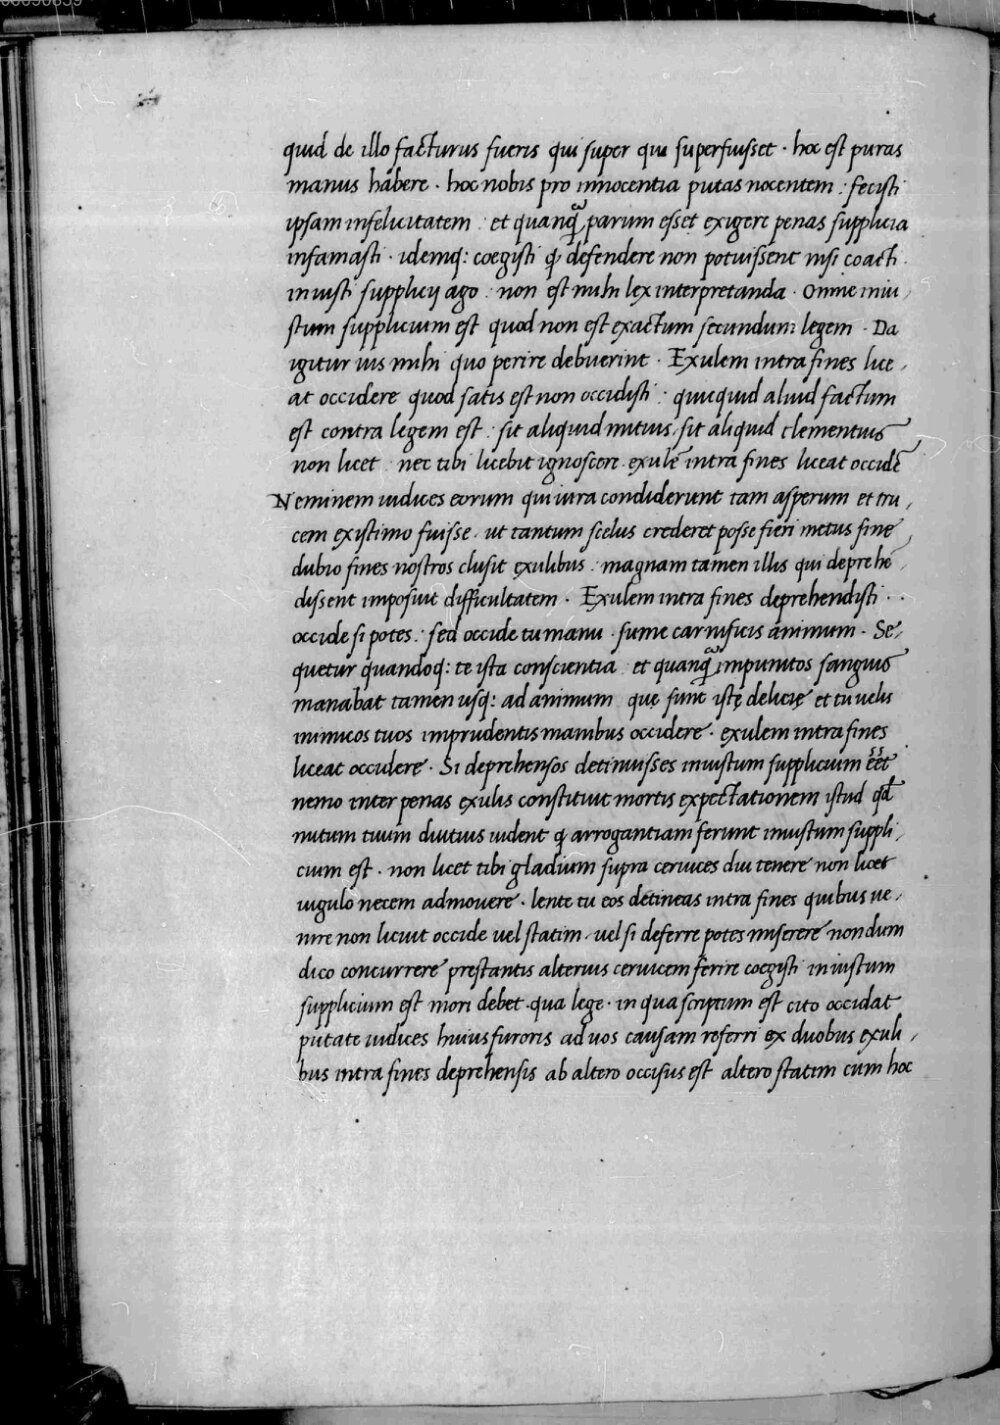 quid de illo facturus fueris qui super qui superfuisset · hoc est puras
manus habere · hoc nobis pro innocentia putas nocentem : fecisti
ipsam infelicitatem : et quanq̃ parum esset exigere penas supplicia
infamasti · idemq: coegisti q̃ defendere non potuissent nisi coacti
iniusti supplicij ago : non est mihi lex interpretanda · Omne iniu,
stum supplicium est quod non est exactum secundum legem · Da
igitur uis mihi quo perire debuerint · Exulem intra fines lice,
at occidere quod satis est non occidisti : quicquid aliud factum
est contra legem est : sit aliquid mitius, sit aliquid clementius
non licet nec tibi licebit ignoscere · exulẽ intra fines liceat occidẽ
Neminem iudices eorum qui iura condiderunt tam asperum et tru,
cem existimo fuisse, ut tantum scelus crederet posse fieri metus sine
dubio fines nostros clusit exulibus : magnam tamen illis qui deprehẽ,
dissent imposuit difficultatem · Exulem intra fines deprehendisti ··
occide si potes : sed occide tu manu · sume carnificis animum · Se,
quetur quandoq: te ista conscientia et quanq̃ impunitos sanguis
manabat tamen usq: ad animum que sunt istę delicię et tu uelis
inimicos tuos imprudentis manibus occidere · exulem intra fines
liceat occidere · Si deprehensos detinuisses iniustum supplicium eẽt
nemo inter penas exulis constituit mortis expectationem istud qđ
nutum tuum diutius uident q̃ arrogantiam ferunt iniustum suppli,
cium est · non licet tibi gladium supra ceruices diu tenere non licet
iugulo necem admouere · lente tu eos detineas intra fines quibus ue,
nire non licuit occide uel statim, uel si deferre potes miserere nondum
dico concurrere prestantis alterius ceruicem ferire coegisti iniustum
supplicium est mori debet · qua lege · in qua scriptum est cito occidat
putate iudices huius furoris ad uos causam referri ex duobus exuli,
bus intra fines deprehensis ab altero occisus est altero statim cum hoc